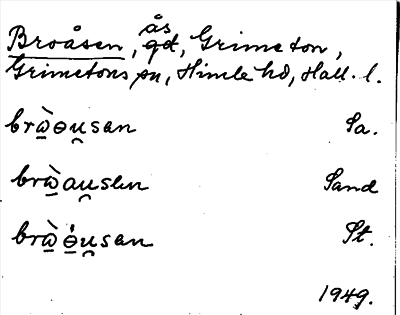 Broåsen, ås, Grimeton,
Grimetons sn, Himle hd, Hall. l.
brὼ̲ɵu̯san Sa.
brὼ̲au̯slɩn Sand
brὼ̲ɵ̲̇u̯san St.
1949.